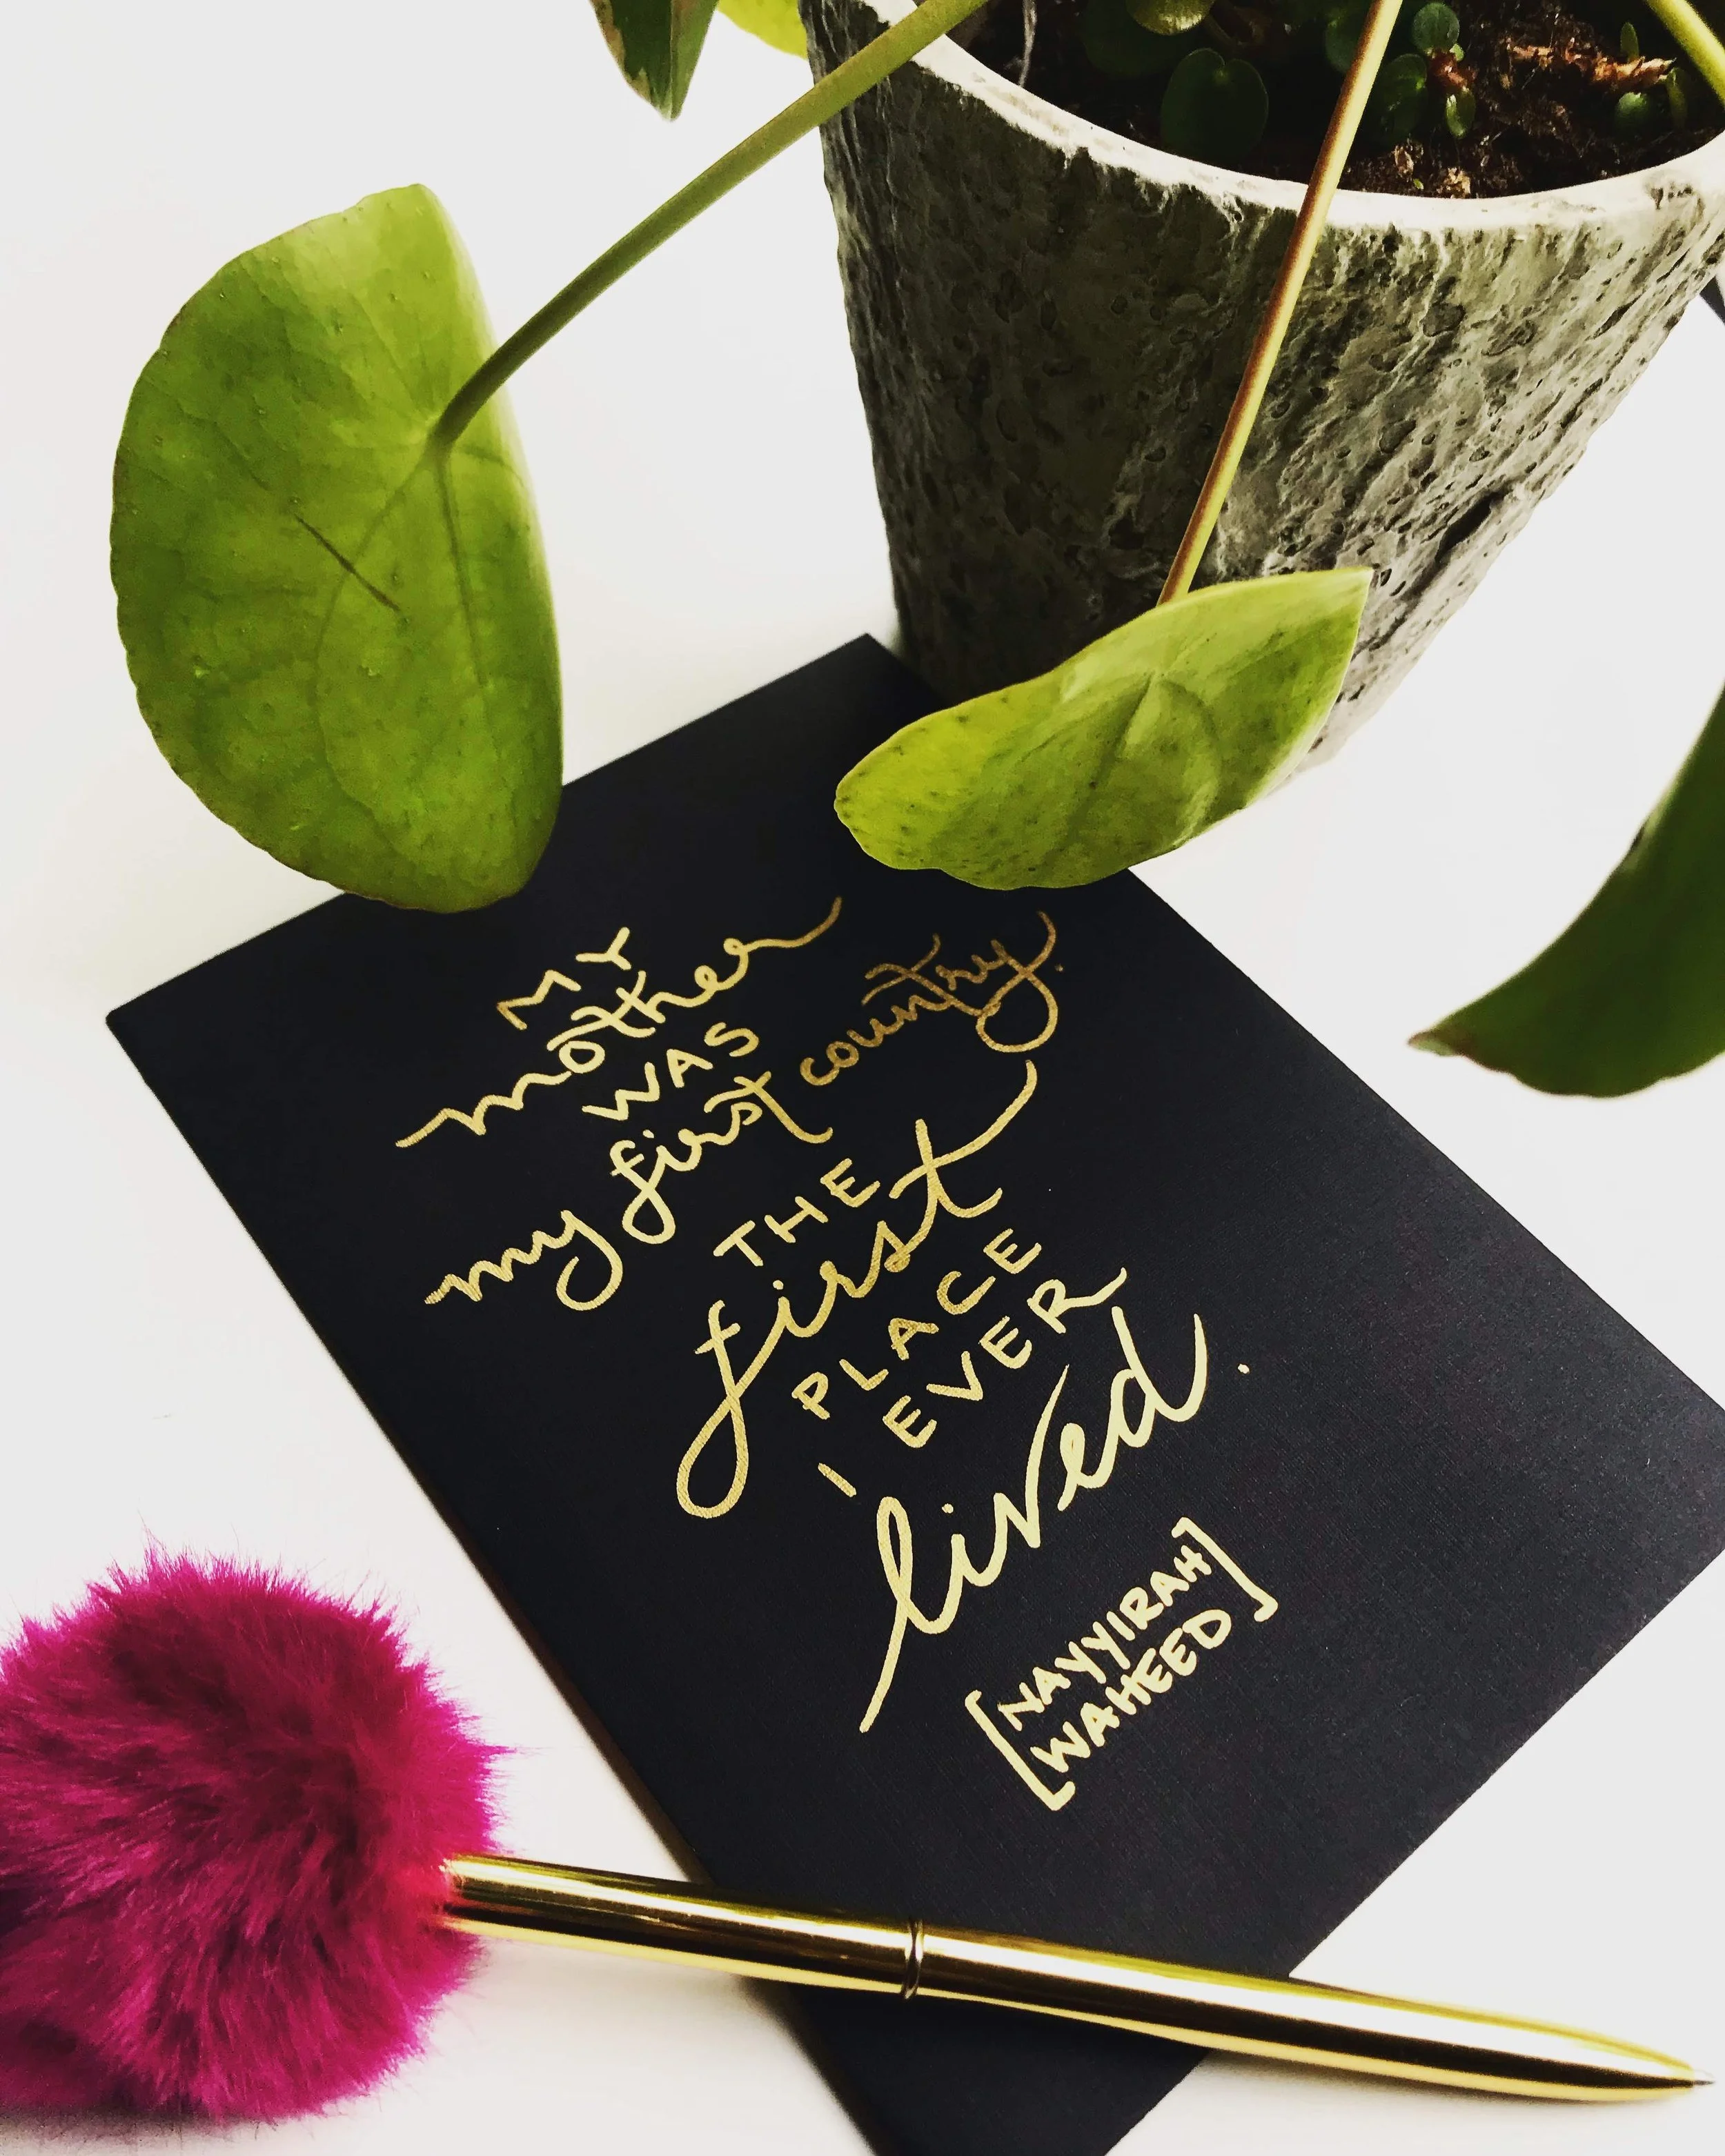 MY
mother
WAS
my first country.
THE
first
PLACE
I EVER
lived.
[NAYYIRAH
WAHEED]